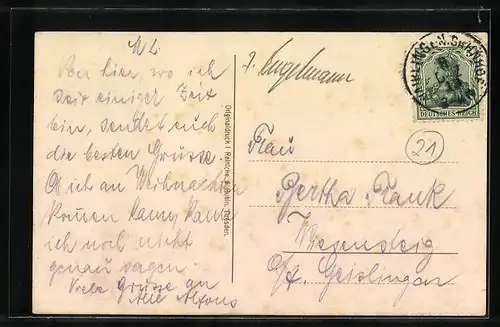 M. L.
Von hier, wo ich
seit einiger Zeit
bin, sendet euch
die besten Grüsse.
Ob ich an Weihnachten
kommen kann, kann
ich noch nicht
genau sagen.
Viele Grüsse an
Alle Alfons
Originaldruck
Dresden.
Engelmann
DEUTSCHES REICH
21
Frau
Bertha Frank
Wiesensteig
O/A. Geislingen